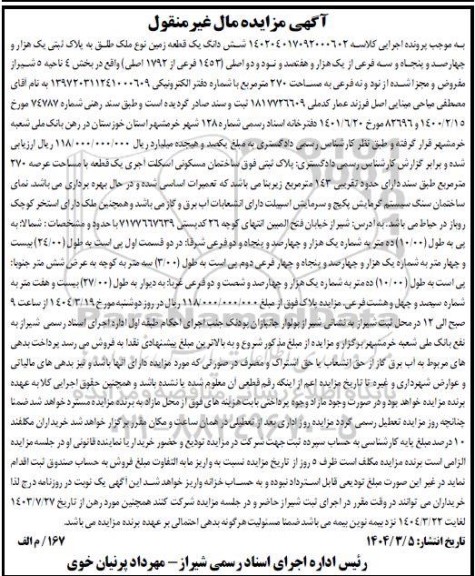 آگهی مزایده مال غیرمنقول
به موجب پرونده اجرایی کلاسه ۱۴۰۲۰۴۰۱۷۰۹۲۰۰۰۶۰۲ شش دانگ یک قطعه زمین نوع ملک طلق به پلاک ثبتی یک هزار و
چهارصد و پنجاه و سه فرعی از یک هزار و هفتصد و نود و دو اصلی (۱۴۵۳ فرعی از ۱۷۹۲ اصلی) واقع در بخش ۴ ناحیه ۵ شیراز
مفروض و مجزا شده از نود و نه فرعی به مساحت ۲۷۰ مترمربع با شماره دفتر الکترونیکی ۱۳۹۷۲۰۳۱۱۲۴۱۰۰۰۶۰۹ به نام آقای
مصطفی میاحی مینایی اصل فرزند عمار کدملی ۱۸۱۷۷۲۶۶۰۹ ثبت و سند صادر گردیده است و طبق سند رهنی شماره ۷۴۷۸۷ مورخ
۱۴۰۰/۲/۱۵ و ۸۳۶۹۶ مورخ ۱۴۰۱/۶/۲۰ دفترخانه اسناد رسمی شماره ۱۲۸ شهر خرمشهر استان خوزستان در رهن بانک ملی شعبه
خرمشهر قرار گرفته و طبق نظر کارشناس رسمی دادگستری به مبلغ یکصد و هیجده میلیارد ریال ۱۱۸/۰۰۰/۰۰۰/۰۰۰ ریال ارزیابی
شده و برابر گزارش کارشناس رسمی دادگستری: پلاک ثبتی فوق ساختمان مسکونی اسکلت اجری یک قطعه با مساحت عرصه ۲۷۰
مترمربع طبق سند دارای حدود تقریبی ۱۴۳ مترمربع زیربنا می باشد که تعمیرات اساسی شده و در حال بهره برداری می باشد. نمای
ساختمان سنگ سیستم گرمایش پکیج و سرمایش اسپیلت دارای انشعابات اب برق و گاز می باشد و همچنین ملک دارای استخر کوچک
روباز در حیاط می باشد. به ادرس: شیراز خیابان فتح المبین انتهای کوچه ۲۶ کدپستی ۷۱۷۷۶۶۷۶۳۹ با حدود و مشخصات: شمالا: به
پی به طول (۱۰/۰۰) ده متر به شماره یک هزار و چهارصد و پنجاه و دو فرعی شرقا: در دو قسمت اول پی است به طول (۲۴/۰۰) بیست
و چهار متر به شماره یک هزار و چهارصد و پنجاه و چهار فرعی دوم پی است به طول (۳/۰۰) سه متر به کوچه به عرض شش متر جنوبا:
پی است به طول (۱۰/۰۰) ده متر به شماره یک هزار و چهارصد و شصت و دو فرعی غربا: به دیوار به طول (۲۷/۰۰) بیست و هفت متر به
شماره سیصد و چهل و هشت فرعی. مزایده پلاک فوق از مبلغ ۱۱۸/۰۰۰/۰۰۰/۰۰۰ ریال در روز دوشنبه مورخ ۱۴۰۴/۳/۱۹ از ساعت ۹
صبح الی ۱۲ در محل ثبت شیراز به نشانی شیراز بولوار جانبازان پودنک جنب اجرای احکام طبقه اول اداره اجرای اسناد رسمی شیراز به
نفع بانک ملی شعبه خرمشهر برگزار و مزایده از مبلغ مذکور شروع و به بالاترین مبلغ پیشنهادی نقدا به فروش می رسد پرداخت بدهی
های مربوط به اب برق گاز از حق انشعاب یا حق اشتراک و مصرف در صورتی که مورد مزایده دارای انها باشد و نیز بدهی های مالیاتی
و عوارض شهرداری و غیره تا تاریخ مزایده اعم از اینکه رقم قطعی ان معلوم شده یا نشده باشد و همچنین حقوق اجرایی کلا به عهده
برنده مزایده خواهد بود و در صورت وجود مازاد وجوه پرداختی بابت هزینه های فوق از محل مازاد به برنده مزایده مسترد خواهد شد ضمنا
چنانچه روز مزایده تعطیل رسمی گردد مزایده روز اداری بعد از تعطیلی در همان ساعت و مکان مقرر برگزار خواهد شد خریداران مکلفند
۱۰ درصد مبلغ پایه کارشناسی به حساب سپرده ثبت جهت شرکت در مزایده تودیع و حضور خریدار یا نماینده قانونی او در جلسه مزایده
الزامی است برنده مزایده مکلف است ظرف ۵ روز از تاریخ مزایده نسبت به واریز مابه التفاوت مبلغ فروش به حساب صندوق ثبت اقدام
نماید در غیر این صورت مبلغ تودیعی قابل استرداد نبوده و به حساب خزانه واریز خواهد شد این آگهی یک نوبت در روزنامه درج لذا
خریداران می توانند در وقت مقرر در اجرای ثبت شیراز حاضر و در جلسه مزایده شرکت کنند همچنین مورد رهن از تاریخ ۱۴۰۳/۷/۲۷
لغایت ۱۴۰۴/۳/۲۲ نزد بیمه نوین بیمه می باشد ضمنا مسئولیت هرگونه بدهی احتمالی بر عهده برنده مزایده می باشد.
تاریخ انتشار: ۱۴۰۴/۳/۵ ۱۶۷/ م الف
رئیس اداره اجرای اسناد رسمی شیراز – مهرداد پرنیان خوی